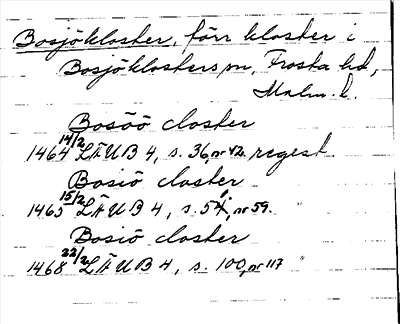 Bosjökloster, förr kloster i
Bosjöklosters sn, Frosta hd,
Malm. l.
Bosöö closter
1464 14/2 LÄUB 4, s. 36, nr 42. regest
Bosiö closter
1465 15/2 LÄUB 4, s. 54, nr 59.
Bosiö closter
1468 22/2 LÄUB 4, s. 100, nr 117